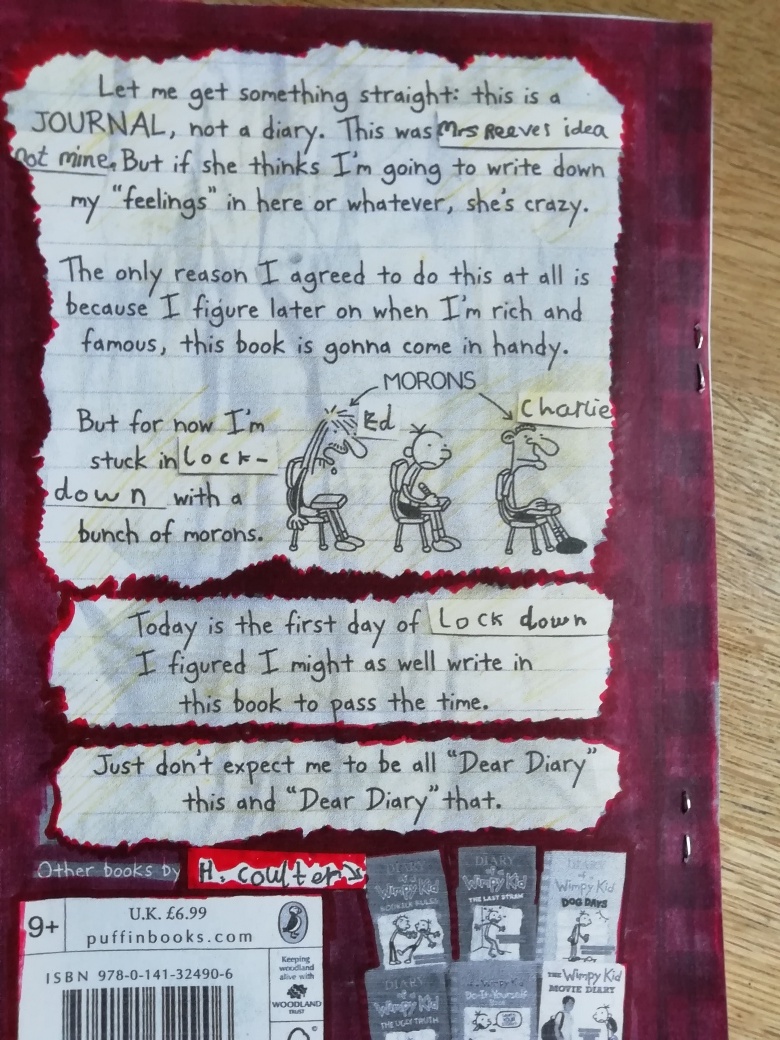 Let me get something straight: this is a
JOURNAL, not a diary. This was Mrs Reeves idea
not mine. But if she thinks I'm going to write down
my "feelings" in here or whatever, she's crazy.
The only reason I agreed to do this at all is
because I figure later on when I'm rich and
famous, this book is gonna come in handy.
MORONS
Ed
Charlie
But for now I'm
stuck in lock-
down with a
bunch of morons.
Today is the first day of lock down
I figured I might as well write in
this book to pass the time.
Just don't expect me to be all "Dear Diary"
this and "Dear Diary" that.
Other books by H. coulter
9+
U.K. £6.99
puffinbooks.com
ISBN 978-0-141-32490-6
Keeping
woodland
alive with
WOODLAND
TRUST
DIARY
of a
Wimpy Kid
RODRICK RULES
DIARY
of a
Wimpy Kid
THE LAST STRAW
DIARY
of a
Wimpy Kid
DOG DAYS
DIARY
of a
Wimpy Kid
THE UGLY TRUTH
Wimpy Kid
Do-It-Yourself
THE Wimpy Kid
MOVIE DIARY